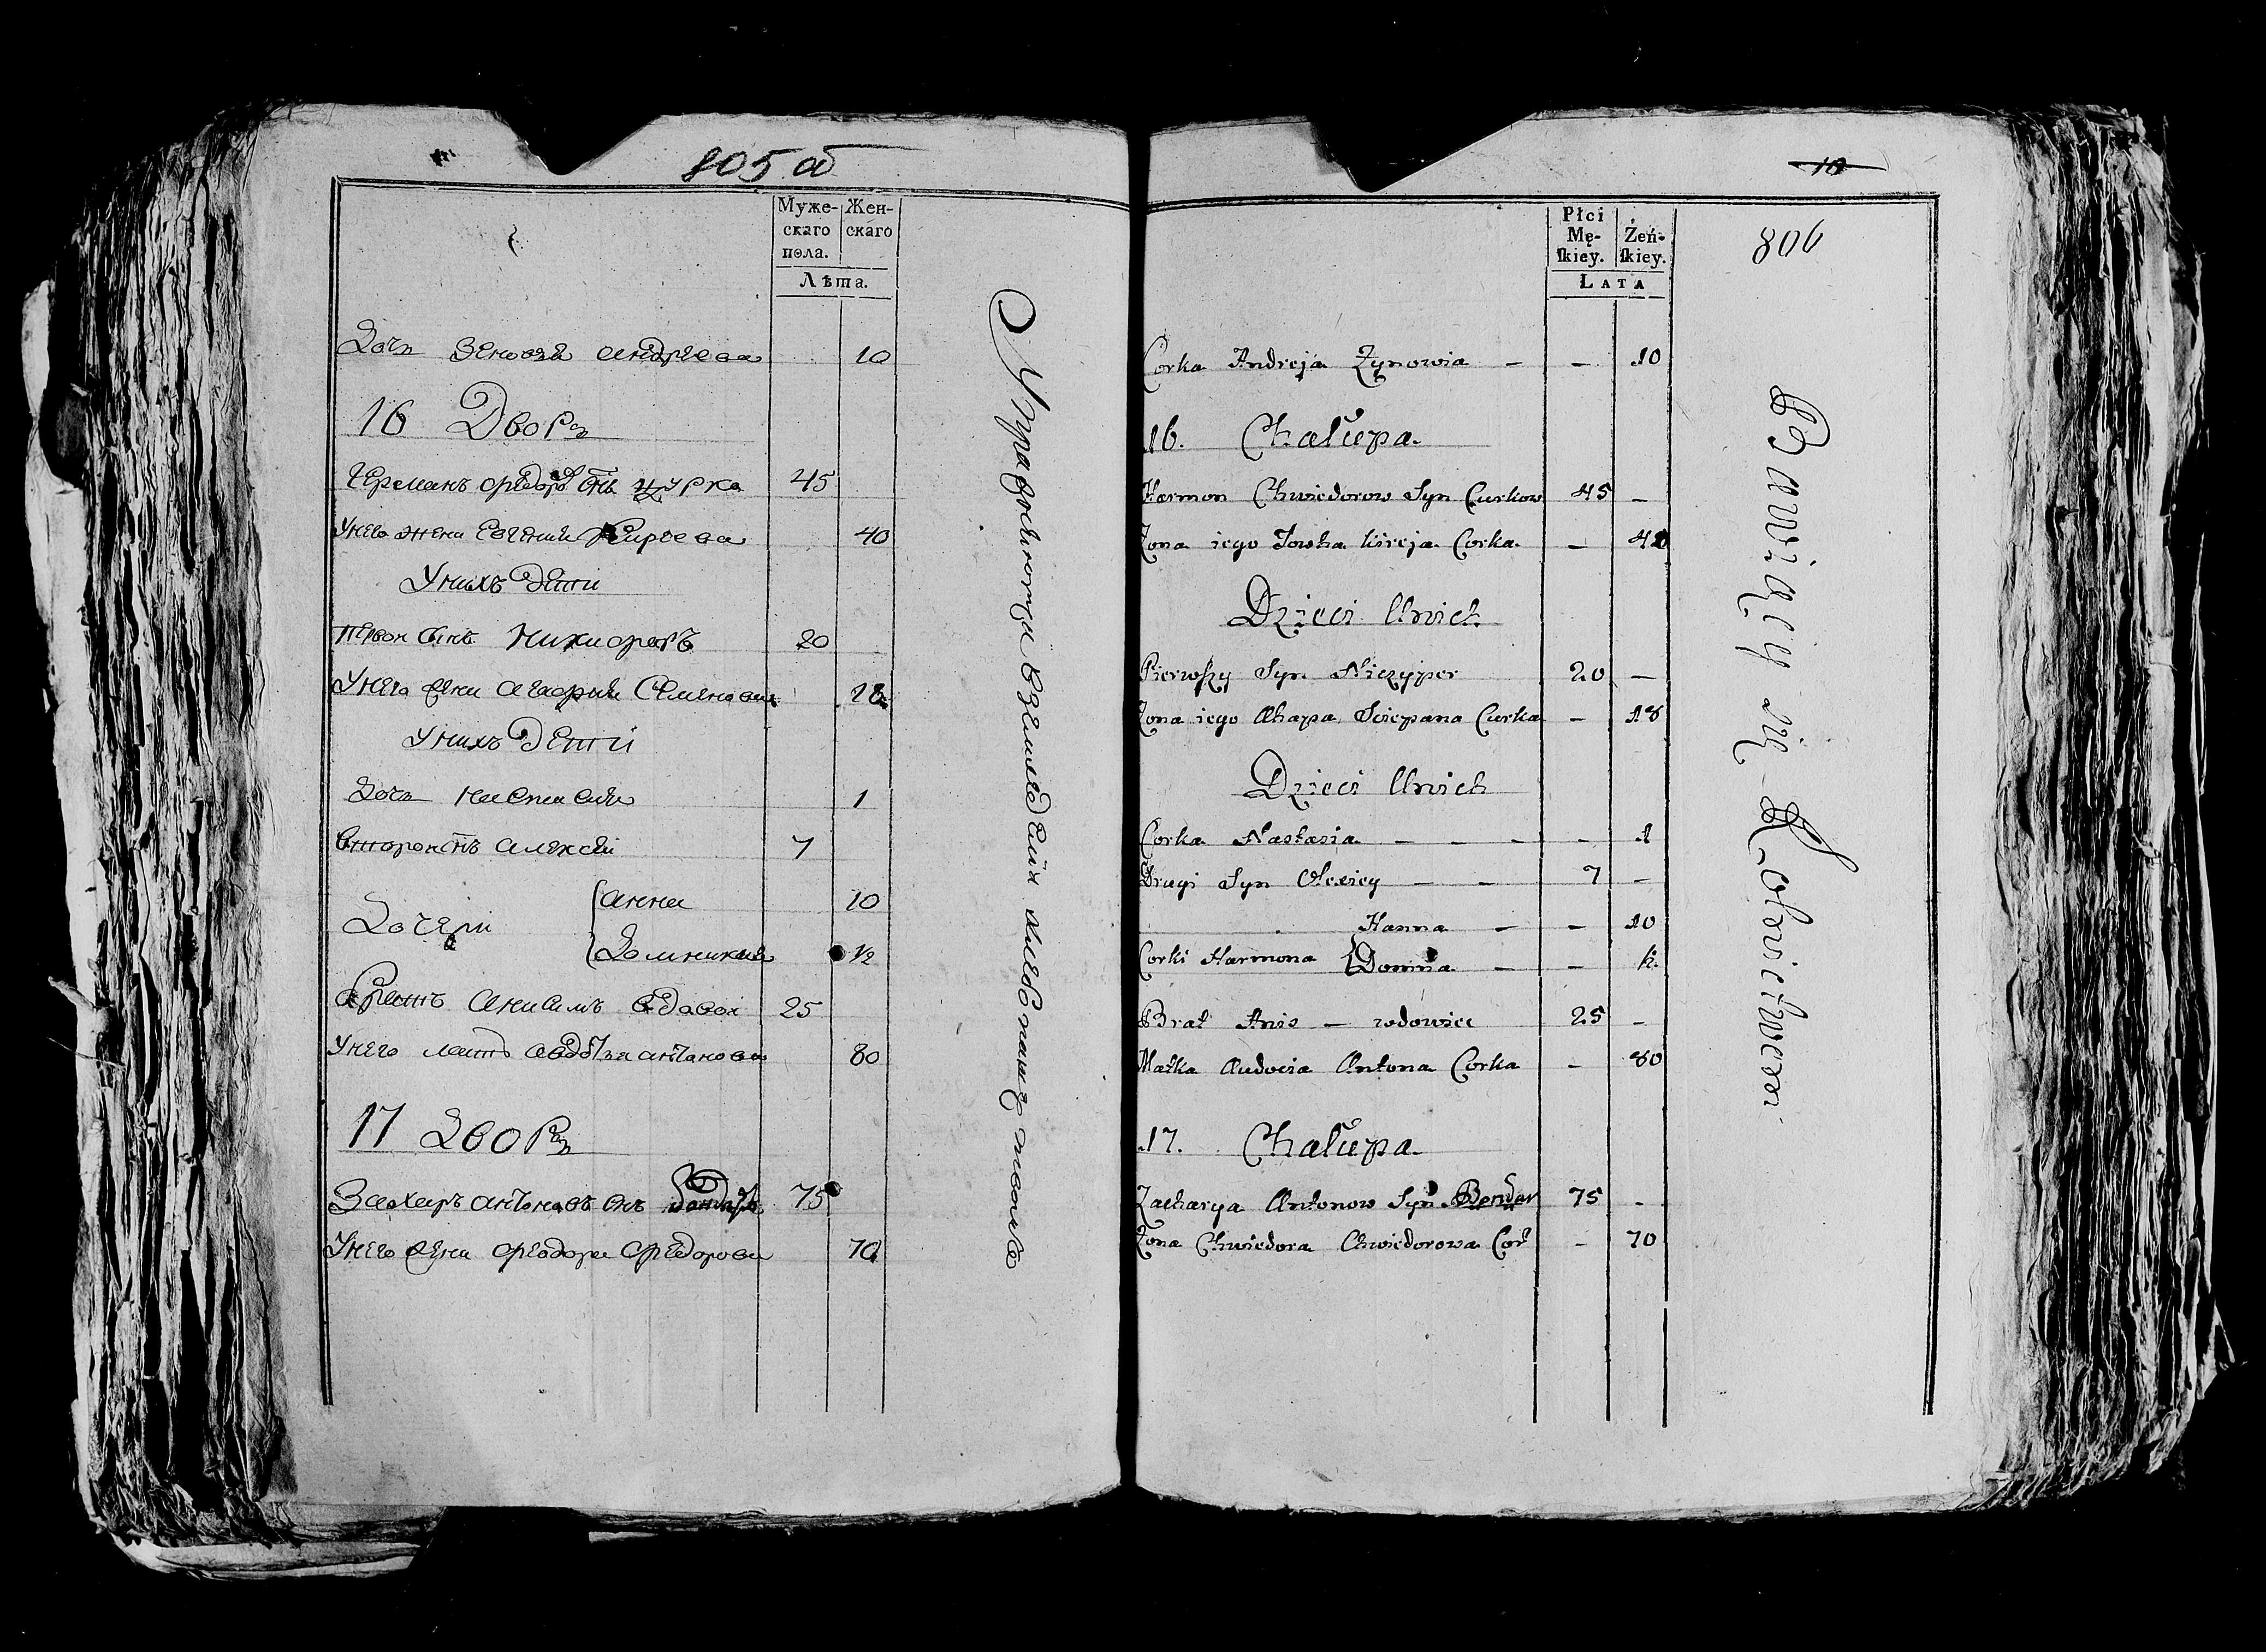 805 об
Муже-
скаго
пола.
Жен-
скаго
Лѣта.
Дочь Зеновья Андреева 10
16 Дворъ
Германъ Федоровъ Снъ Цурка 45
У него жена Евгения Кирѣева 40
У нихъ дети
Первой Сынъ Никифоръ 20
У него жена Агафия Семенова 18
У нихъ дети
Дочь Настасия 1
Второй Снъ Алексей 7
Анна 10
Дочери
Домникия 1/2
Братъ Анисимъ вдовой 25
У него мать Авдотья Антонова 80
17 Дворъ
Захаръ Антоновъ Снъ Бондарь 75
У него жена Феодора Федорова 70
Упражняются в земледелии хлебопашестволѣ
10
806
Płci
Mę-
skiey.
Żeń-
skiey.
LATA
Corka Andreja Zynowia — — 10
16. Chałupa.
Harmon Chwiedorow Syn Curkow 45 —
Zona iego Iowha Kireja Corka. — 40
Dzieci Unich
Pierwszy Syn Niczyper 20 —
Zona iego Ahapa Sciepana Curka — 18
Dzieci Unich
Corka Nastasia — — — — 1
Drugi Syn Olexiey — — 7 —
Hanna — — 10
Corki Harmona Domna — — ½.
Brat Anis — wdowiec 25 —
Matka Audocia Antona Corka — 80
17. Chałupa.
Zacharya Antonow Syn Bondar 75 —
Zona Chwiedora Chwiedorowa Cor — 70
Bawiący się Rolnictwem